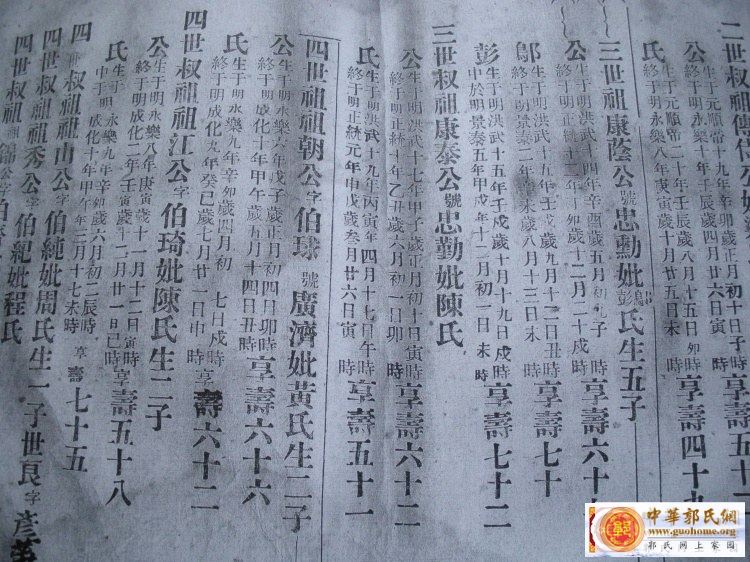 二世叔祖
公生于元順帝十九年辛卯歲正月初十日子時
終于明永樂十年壬辰歲八月十五日卯時享壽
氏生于元順帝二十年
歲四月廿六日寅時享壽四十九
終于明永樂八年
三世祖康蔭公號忠勳妣鄔彭氏生五子
公生于明洪武十四年辛酉歲五月初九子時享壽六十
鄔生于明洪武十五年壬戌歲九月十二日丑時享壽七十
終于明景泰二年辛未歲八月十三日未時
彭生于明洪武十五年壬戌歲十月十九日戌時享壽七十二
終於明景泰五年甲戌年十二月初一日未時
三世叔祖康泰公號忠勤妣陳氏
公生于明洪武十七年甲子歲正月初十日寅時享壽六十二
終于明正統十年乙丑歲六月初一日卯時
氏生于明洪武十九年丙寅年四月十七日午時享壽五十一
終于明正統元年
歲叁月廿六日寅時
四世祖祖朝公字伯球號廣濟妣黃氏生二子
公生于明永樂六年戊子歲正月初四日卯時享壽六十六
終于明成化十年甲午歲五月十四日丑時
氏生于明永樂九年辛卯歲四月初七日戌時享壽六十二
終于明成化九年癸巳歲七月廿一日申時
四世叔祖祖江公字伯琦妣陳氏生二子
公生于明永樂八年庚寅歲十一月十二日寅時享壽五十八
終于明成化二年
歲十二月廿一日巳時
氏生于明永樂九年辛卯歲六月初二辰時享壽七十五
成化
年三月十七未時
四世叔祖祖山公字伯純妣周氏生一子世良字彦
四世叔祖祖秀公字伯紀妣程氏
四世叔祖祖錦公字伯
中華郭氏網
www.guohome.org
郭氏網上家園